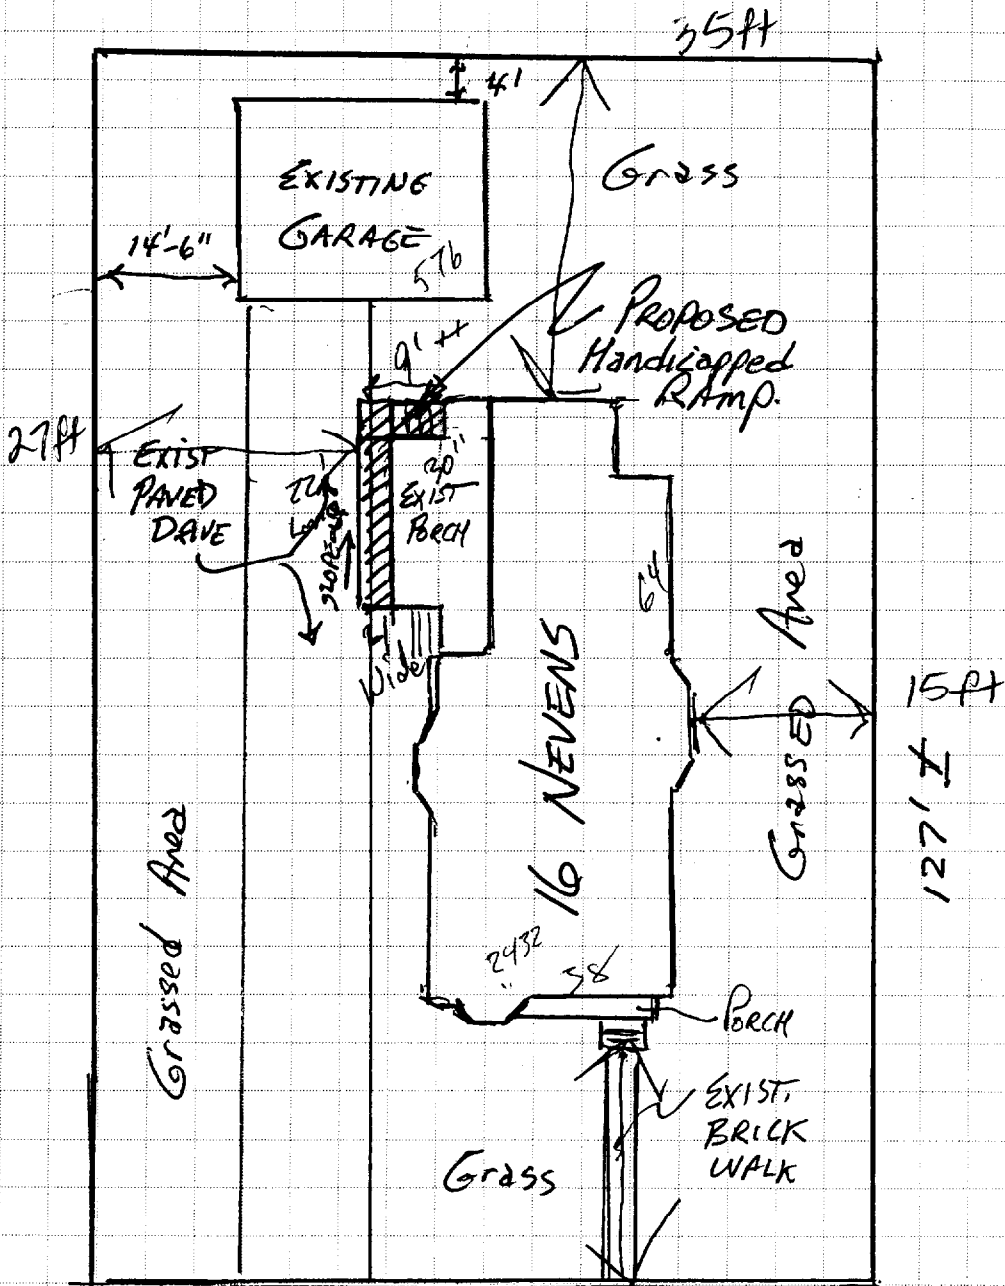 35ft
4'
EXISTING
GARAGE
576
Grass
14'-6"
PROPOSED
Handicapped
RAmp.
9' ±
27ft
EXIST
PAVED
DRIVE
20"
EXIST
PORCH
Wide
64
16 NEVENS
GrassED Area
15ft
127' ±
Grassed Area
2432
38
PORCH
EXIST.
BRICK
WALK
Grass